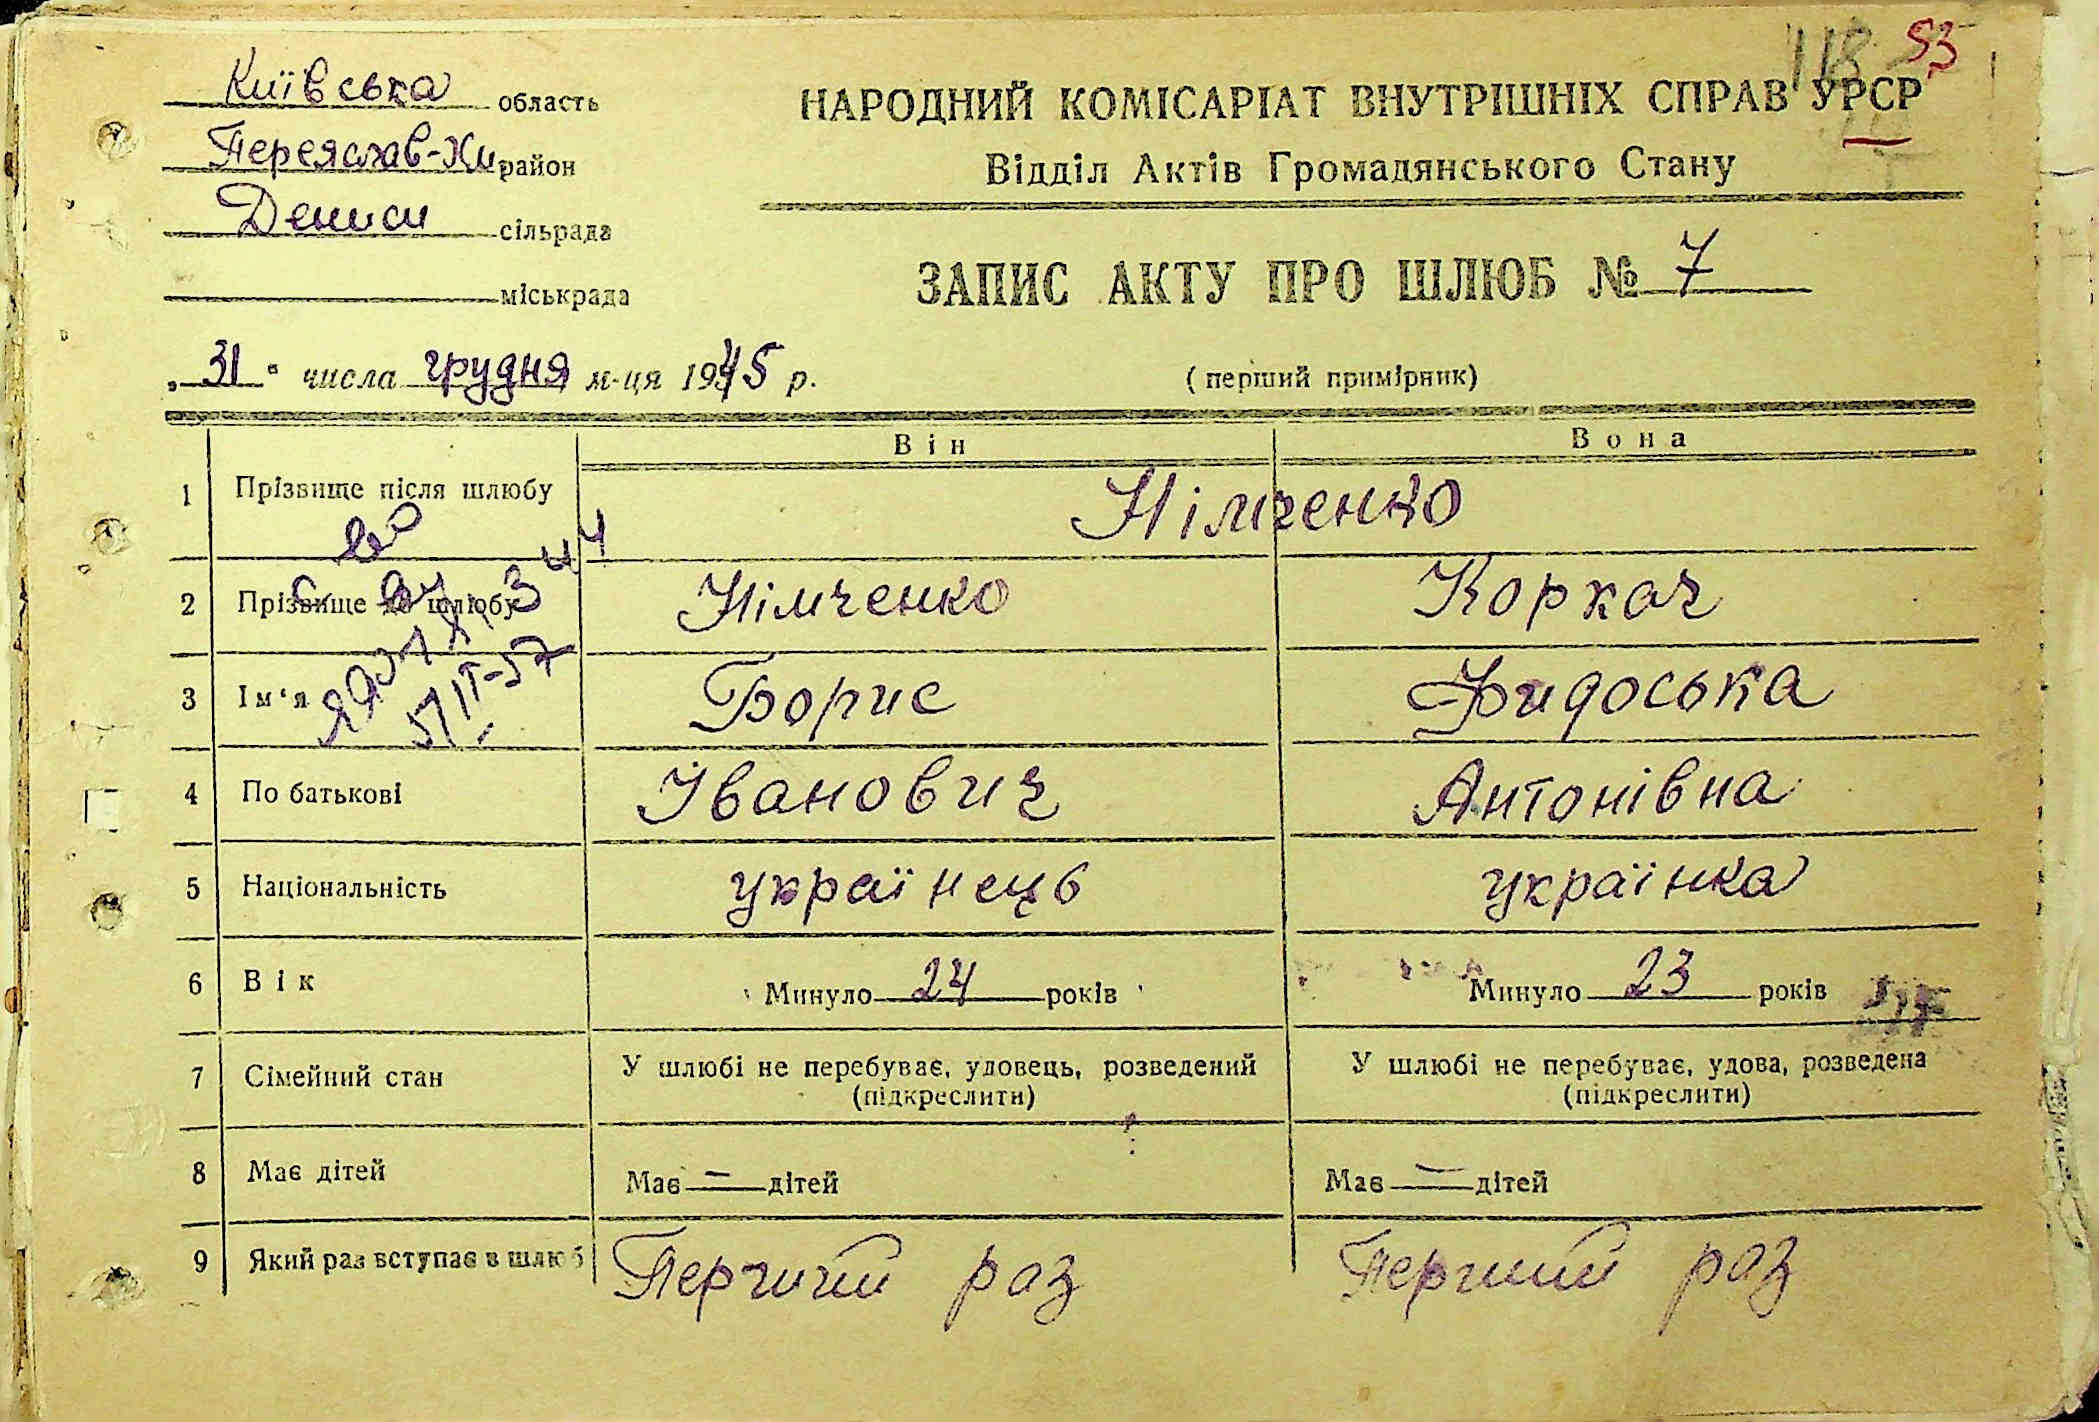 118 53
Київська область
Переяслав-Хм район
Дениси сільрада
міськрада
НАРОДНИЙ КОМІСАРІАТ ВНУТРІШНІХ СПРАВ УРСР
Відділ Актів Громадянського Стану
ЗАПИС АКТУ ПРО ШЛЮБ № 7
„31“ числа грудня м-ця 1945 р.
(перший примірник)
Він Вона
1 Прізвище після шлюбу Німченко
2 Прізвище до шлюбу Німченко Коркач
3 Ім'я Борис Фидоська
4 По батькові Іванович Антонівна
5 Національність українець українка
6 Вік Минуло 24 років Минуло 23 років
7 Сімейний стан У шлюбі не перебуває, удовець, розведений У шлюбі не перебуває, удова, розведена
(підкреслити) (підкреслити)
8 Має дітей Має — дітей Має — дітей
9 Який раз вступає в шлюб Перчий раз Перший раз